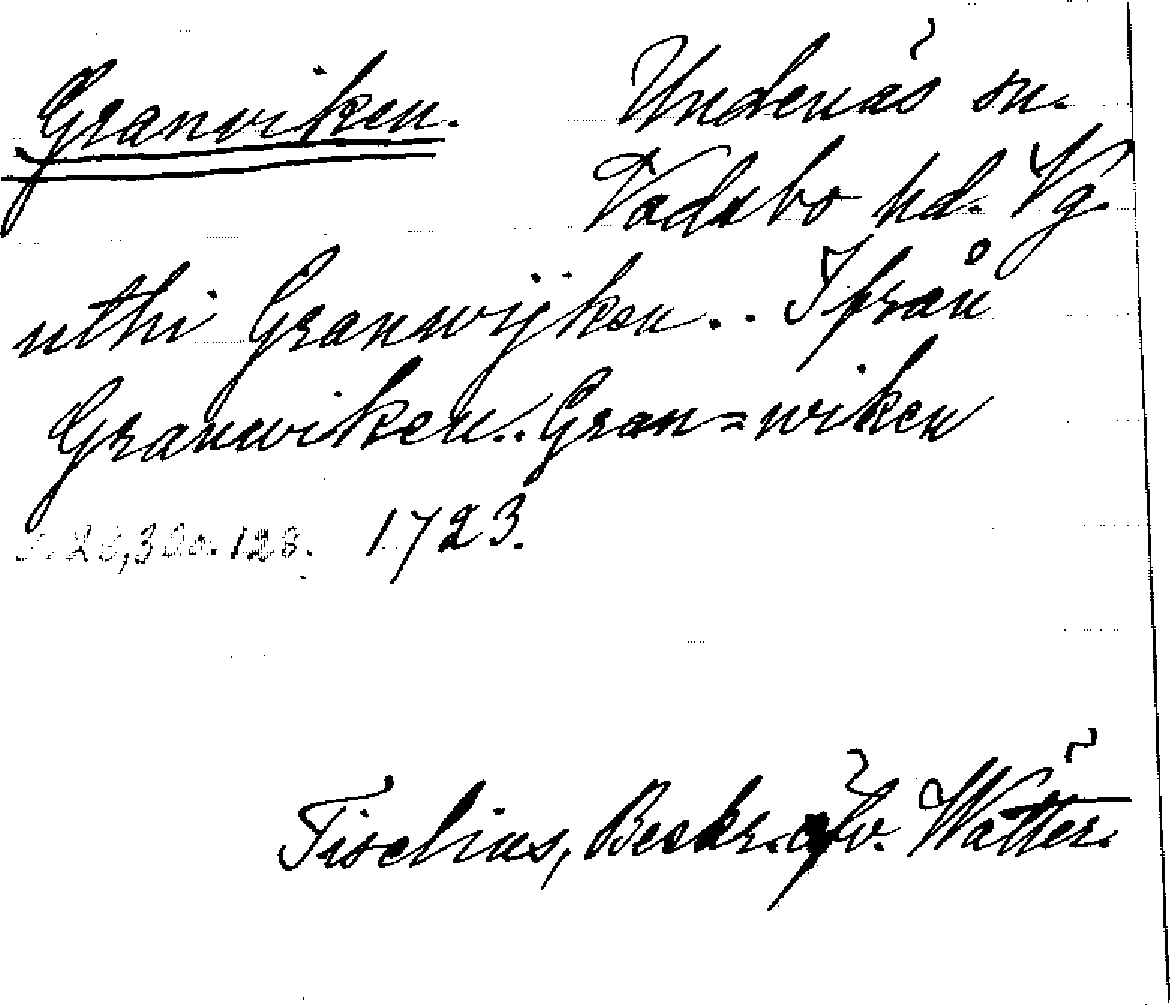 Granviken. Undenäs sn.
Vadsbo hd. Vg.
uthi Granwijken.. Ifrån
Granwiken.. Gran=wiken
1723.
Tiselius, Beskr. öfv. Wätter.